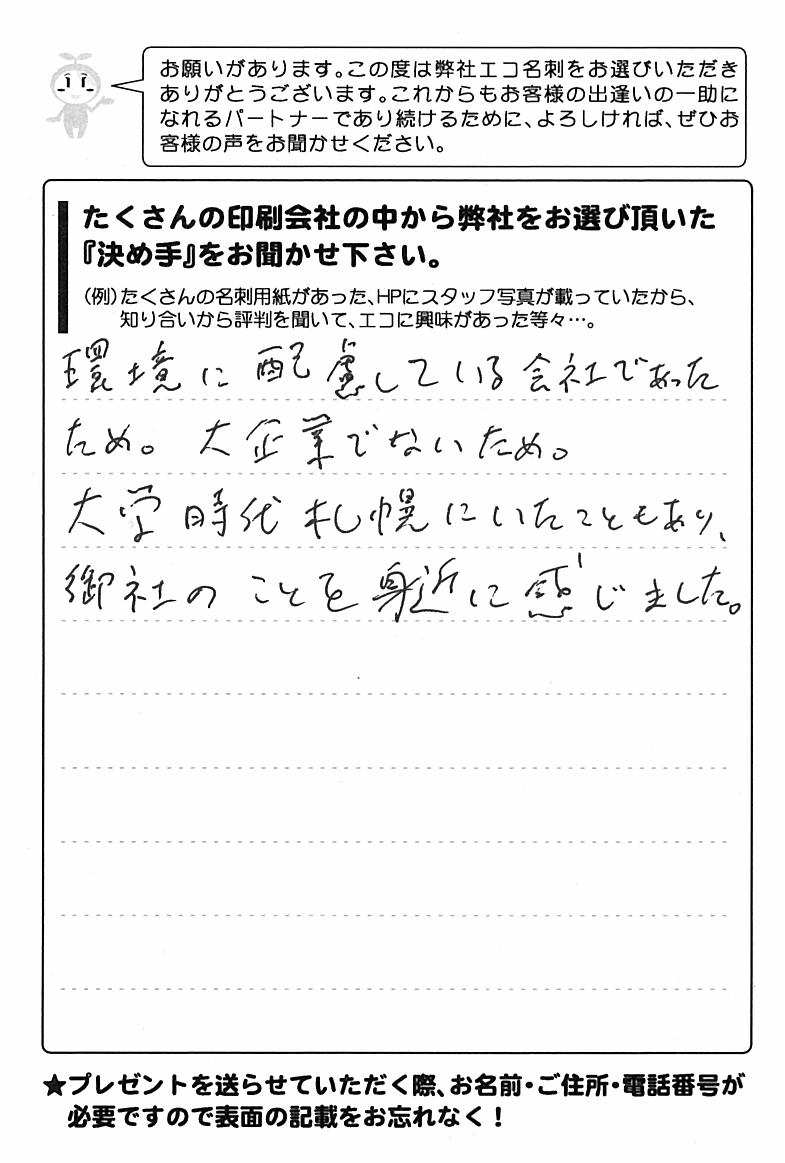 お願いがあります。この度は弊社エコ名刺をお選びいただき
ありがとうございます。これからもお客様の出逢いの一助に
なれるパートナーであり続けるために、よろしければ、ぜひお
客様の声をお聞かせください。
たくさんの印刷会社の中から弊社をお選び頂いた
『決め手』をお聞かせ下さい。
(例)たくさんの名刺用紙があった、HPにスタッフ写真が載っていたから、
知り合いから評判を聞いて、エコに興味があった等々…。
環境に配慮している会社であった
ため。大企業でないため。
大学時代札幌にいたこともあり、
御社のことを身近に感じました。
★プレゼントを送らせていただく際、お名前・ご住所・電話番号が
必要ですので表面の記載をお忘れなく!